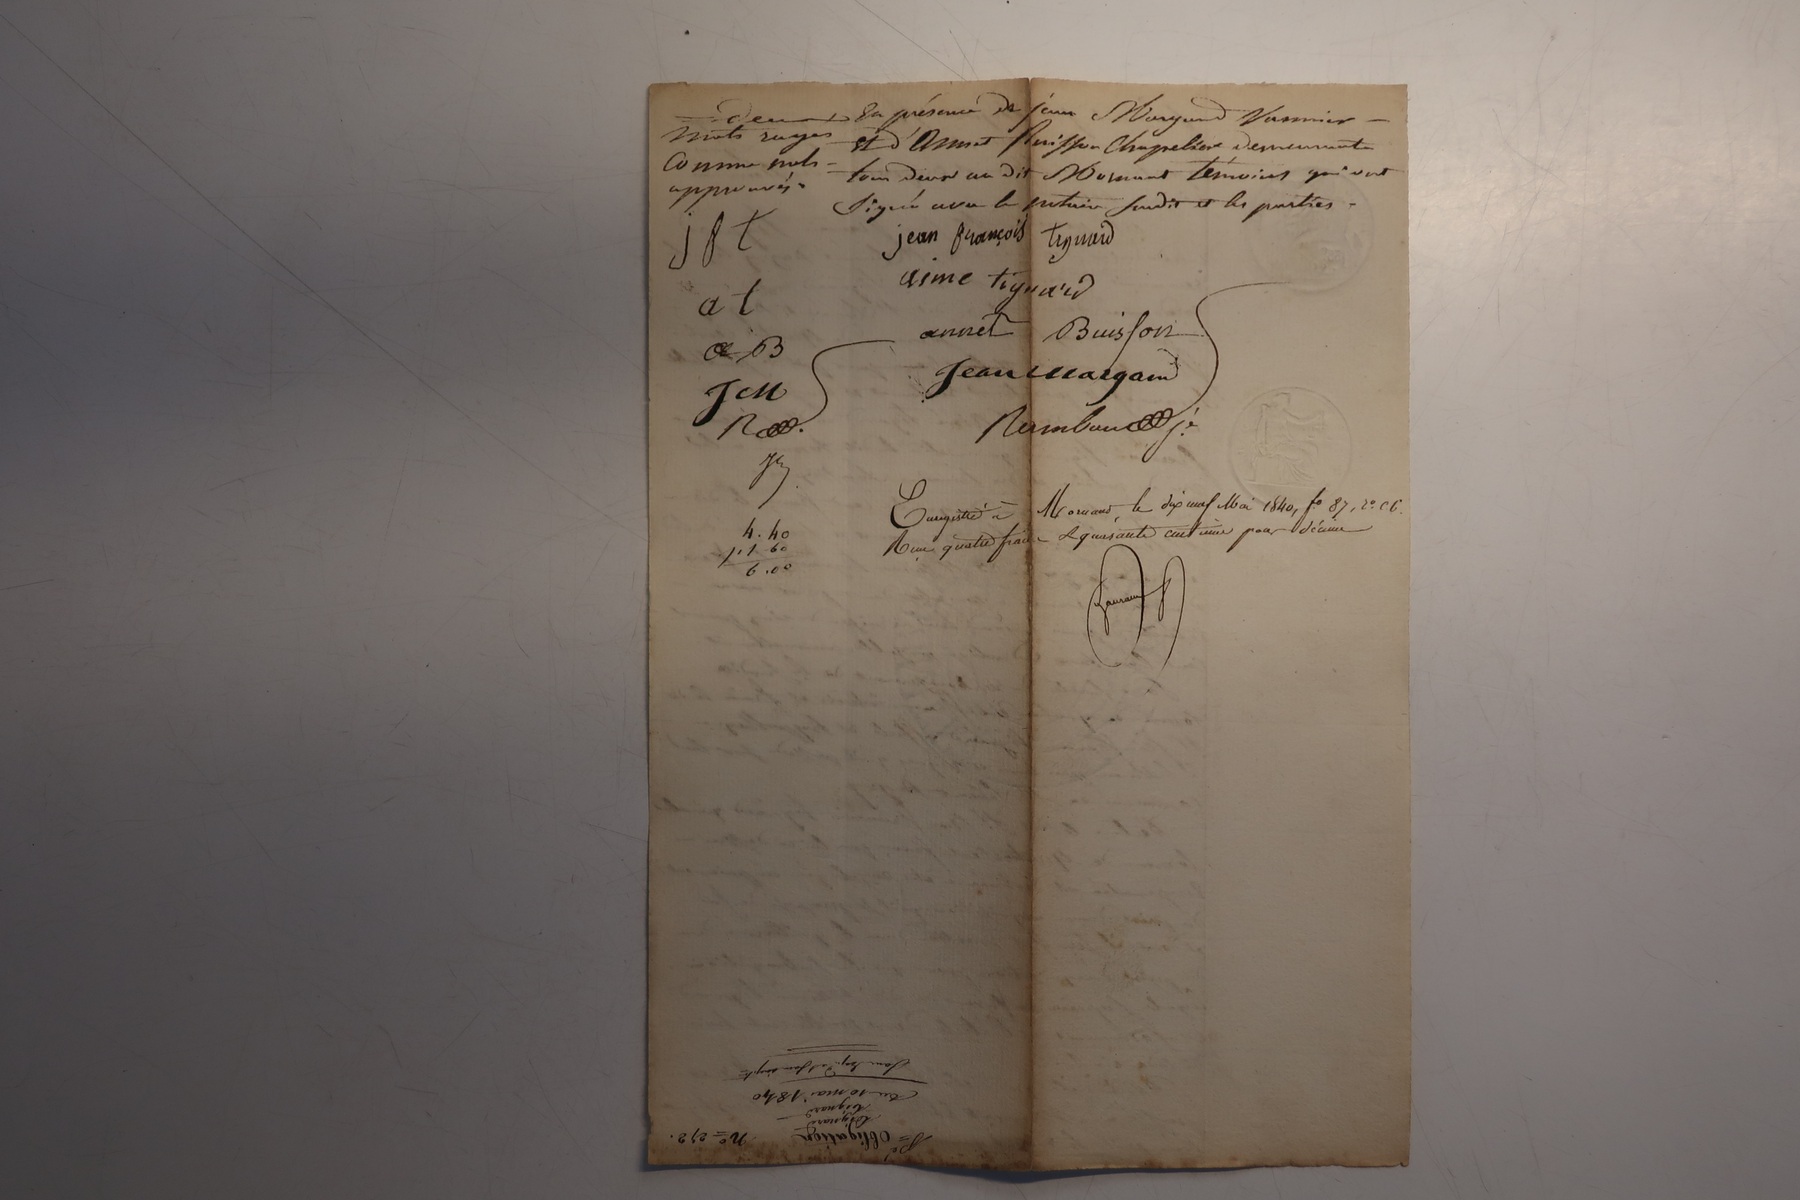 En présence de Jean Margand Vannier
et d'Annet Buisson Chapelier demeurants
tous deux au dit Mornant témoins qui ont
Signé avec le notaire susdit et les parties.
deux
mots rayés
comme nuls
approuvés.
j f t
a t
a B
J M
R
4.40
1.60
6.00
jean françois tignard
aime tignard
annet Buisson
Jean Margand
Enregistré à Mornant, le dix neuf Mai 1840, fo 87, ro C 6.
Reçu quatre francs quarante centime pour décime
Obligation
tignard
tignard
du 10 mai 1840